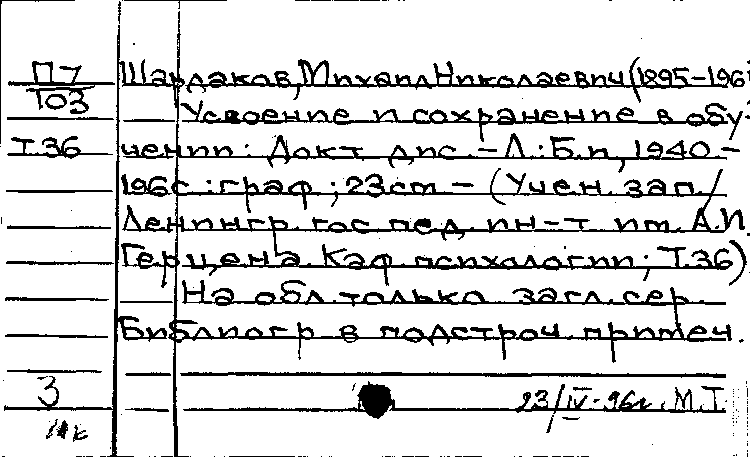 П7 Шардаков, Михаил Николаевич (1895-196
Т03 Усвоение и сохранение в обу-
Т.36 чении: Докт. дис. - Л.: Б.и, 1940. -
196с.: граф.; 23cm - (Учен. зап./
Ленингр. гос. пед. ин-т им. А.И.
Герцена. Каф. психологии; Т.36)
На обл. только загл. сер.
Библиогр. в подстроч. примеч.
3 23/IV-96г. М.Т.